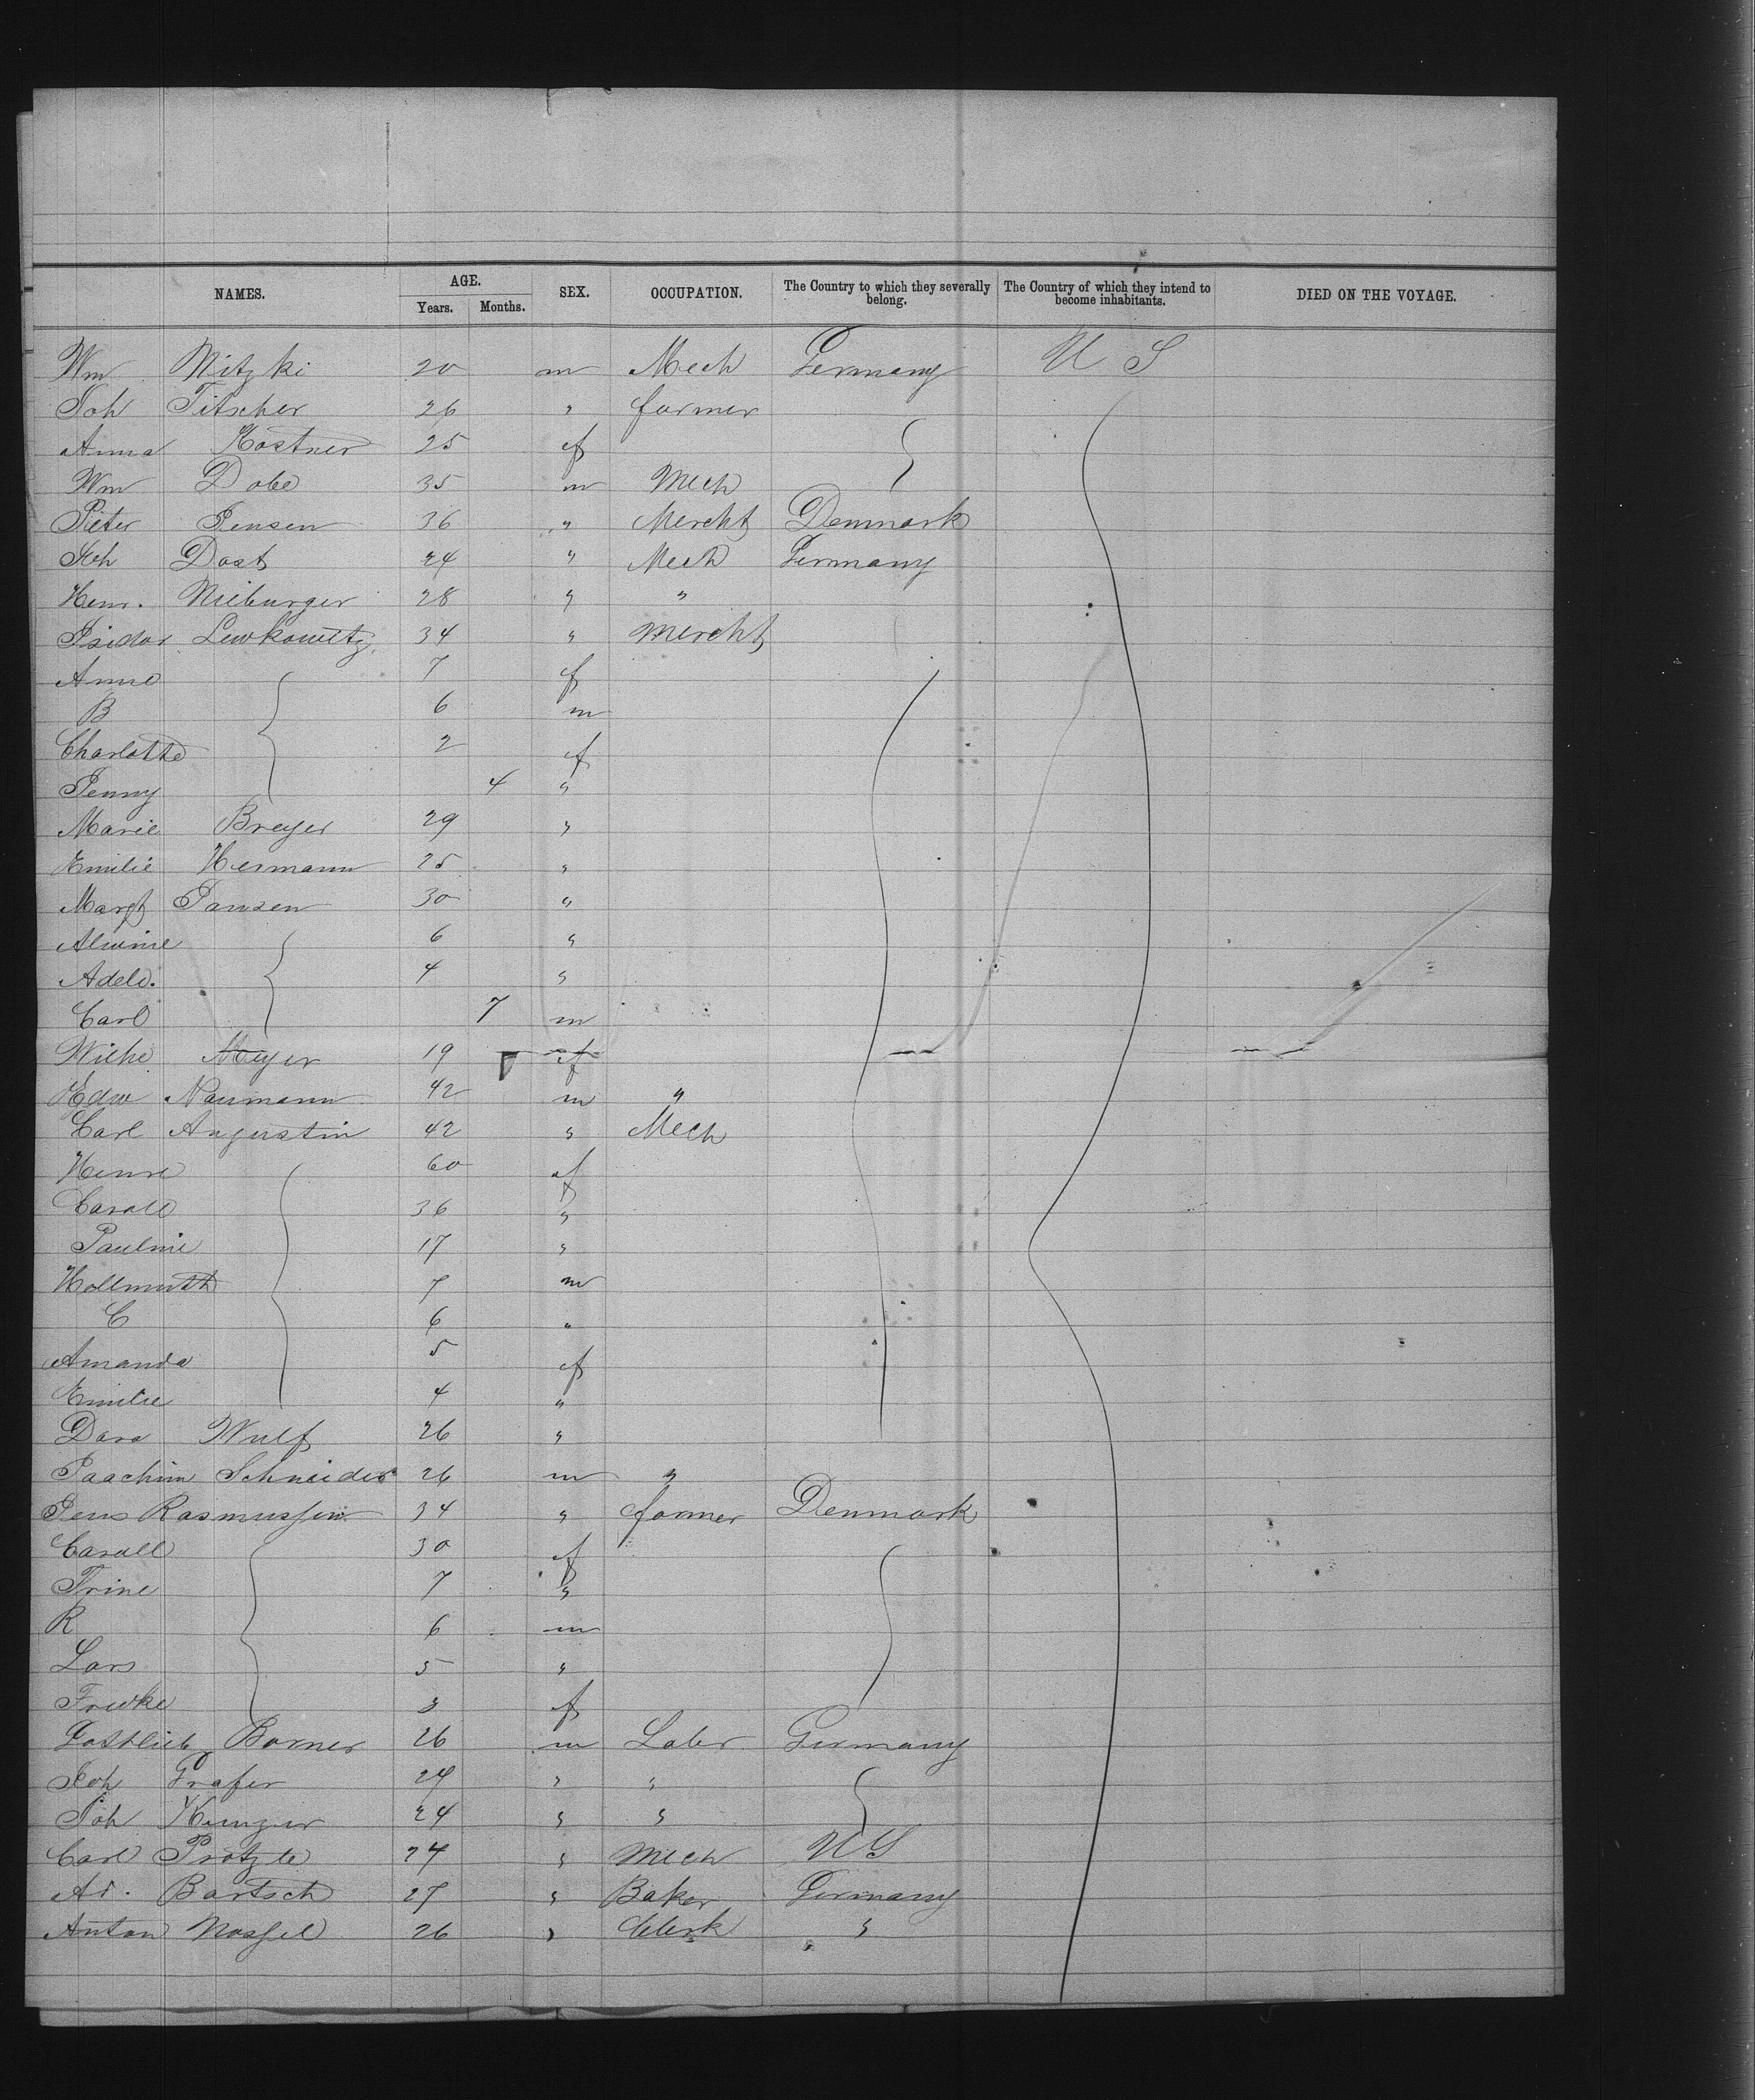 NAMES. AGE. SEX. OCCUPATION. The Country to which they severally belong. The Country of which they intend to become inhabitants. DIED ON THE VOYAGE.
Years. Months.
Wm Nitzki 20 m Mech Germany U S
Joh Titscher 26 " farmer
Anna Kostner 25 f
Wm Dobe 35 m Mech
Peter Jensen 36 " Mercht Denmark
Joh Dost 24 " Mech Germany
Henr. Nieburger 28 " "
Isidor Lewkowitz 34 " Mercht
Anne 7 f
B 6 m
Charlotte 2 f
Jenny 4 "
Marie Breyer 29 "
Emilie Hermann 25 "
Margt Jansen 30 "
Alwine 6 "
Adele. 4 "
Carl 7 m
Wilhe Meyer 19 f
Edw Naumann 42 m "
Carl Augustin 42 " Mech
Henre 60 f
Caroll 36 "
Pauline 17 "
Hollmuth 7 m
C 6 "
Amanda 5 f
Emilie 4 "
Dora Wulf 26 "
Joachim Schneider 26 m "
Jens Rasmussen 34 " farmer Denmark
Caroll 30 f
Trine 7 "
R 6 m
Lars 5 "
3 f
Gottlieb Borner 26 m Labr Germany
Joh Grafer 24 " "
Joh 24 " "
Carl Protzle 24 " Mech U S
Ad. Bartsch 27 " Baker Germany
Anton Nossel 26 " Clerk "